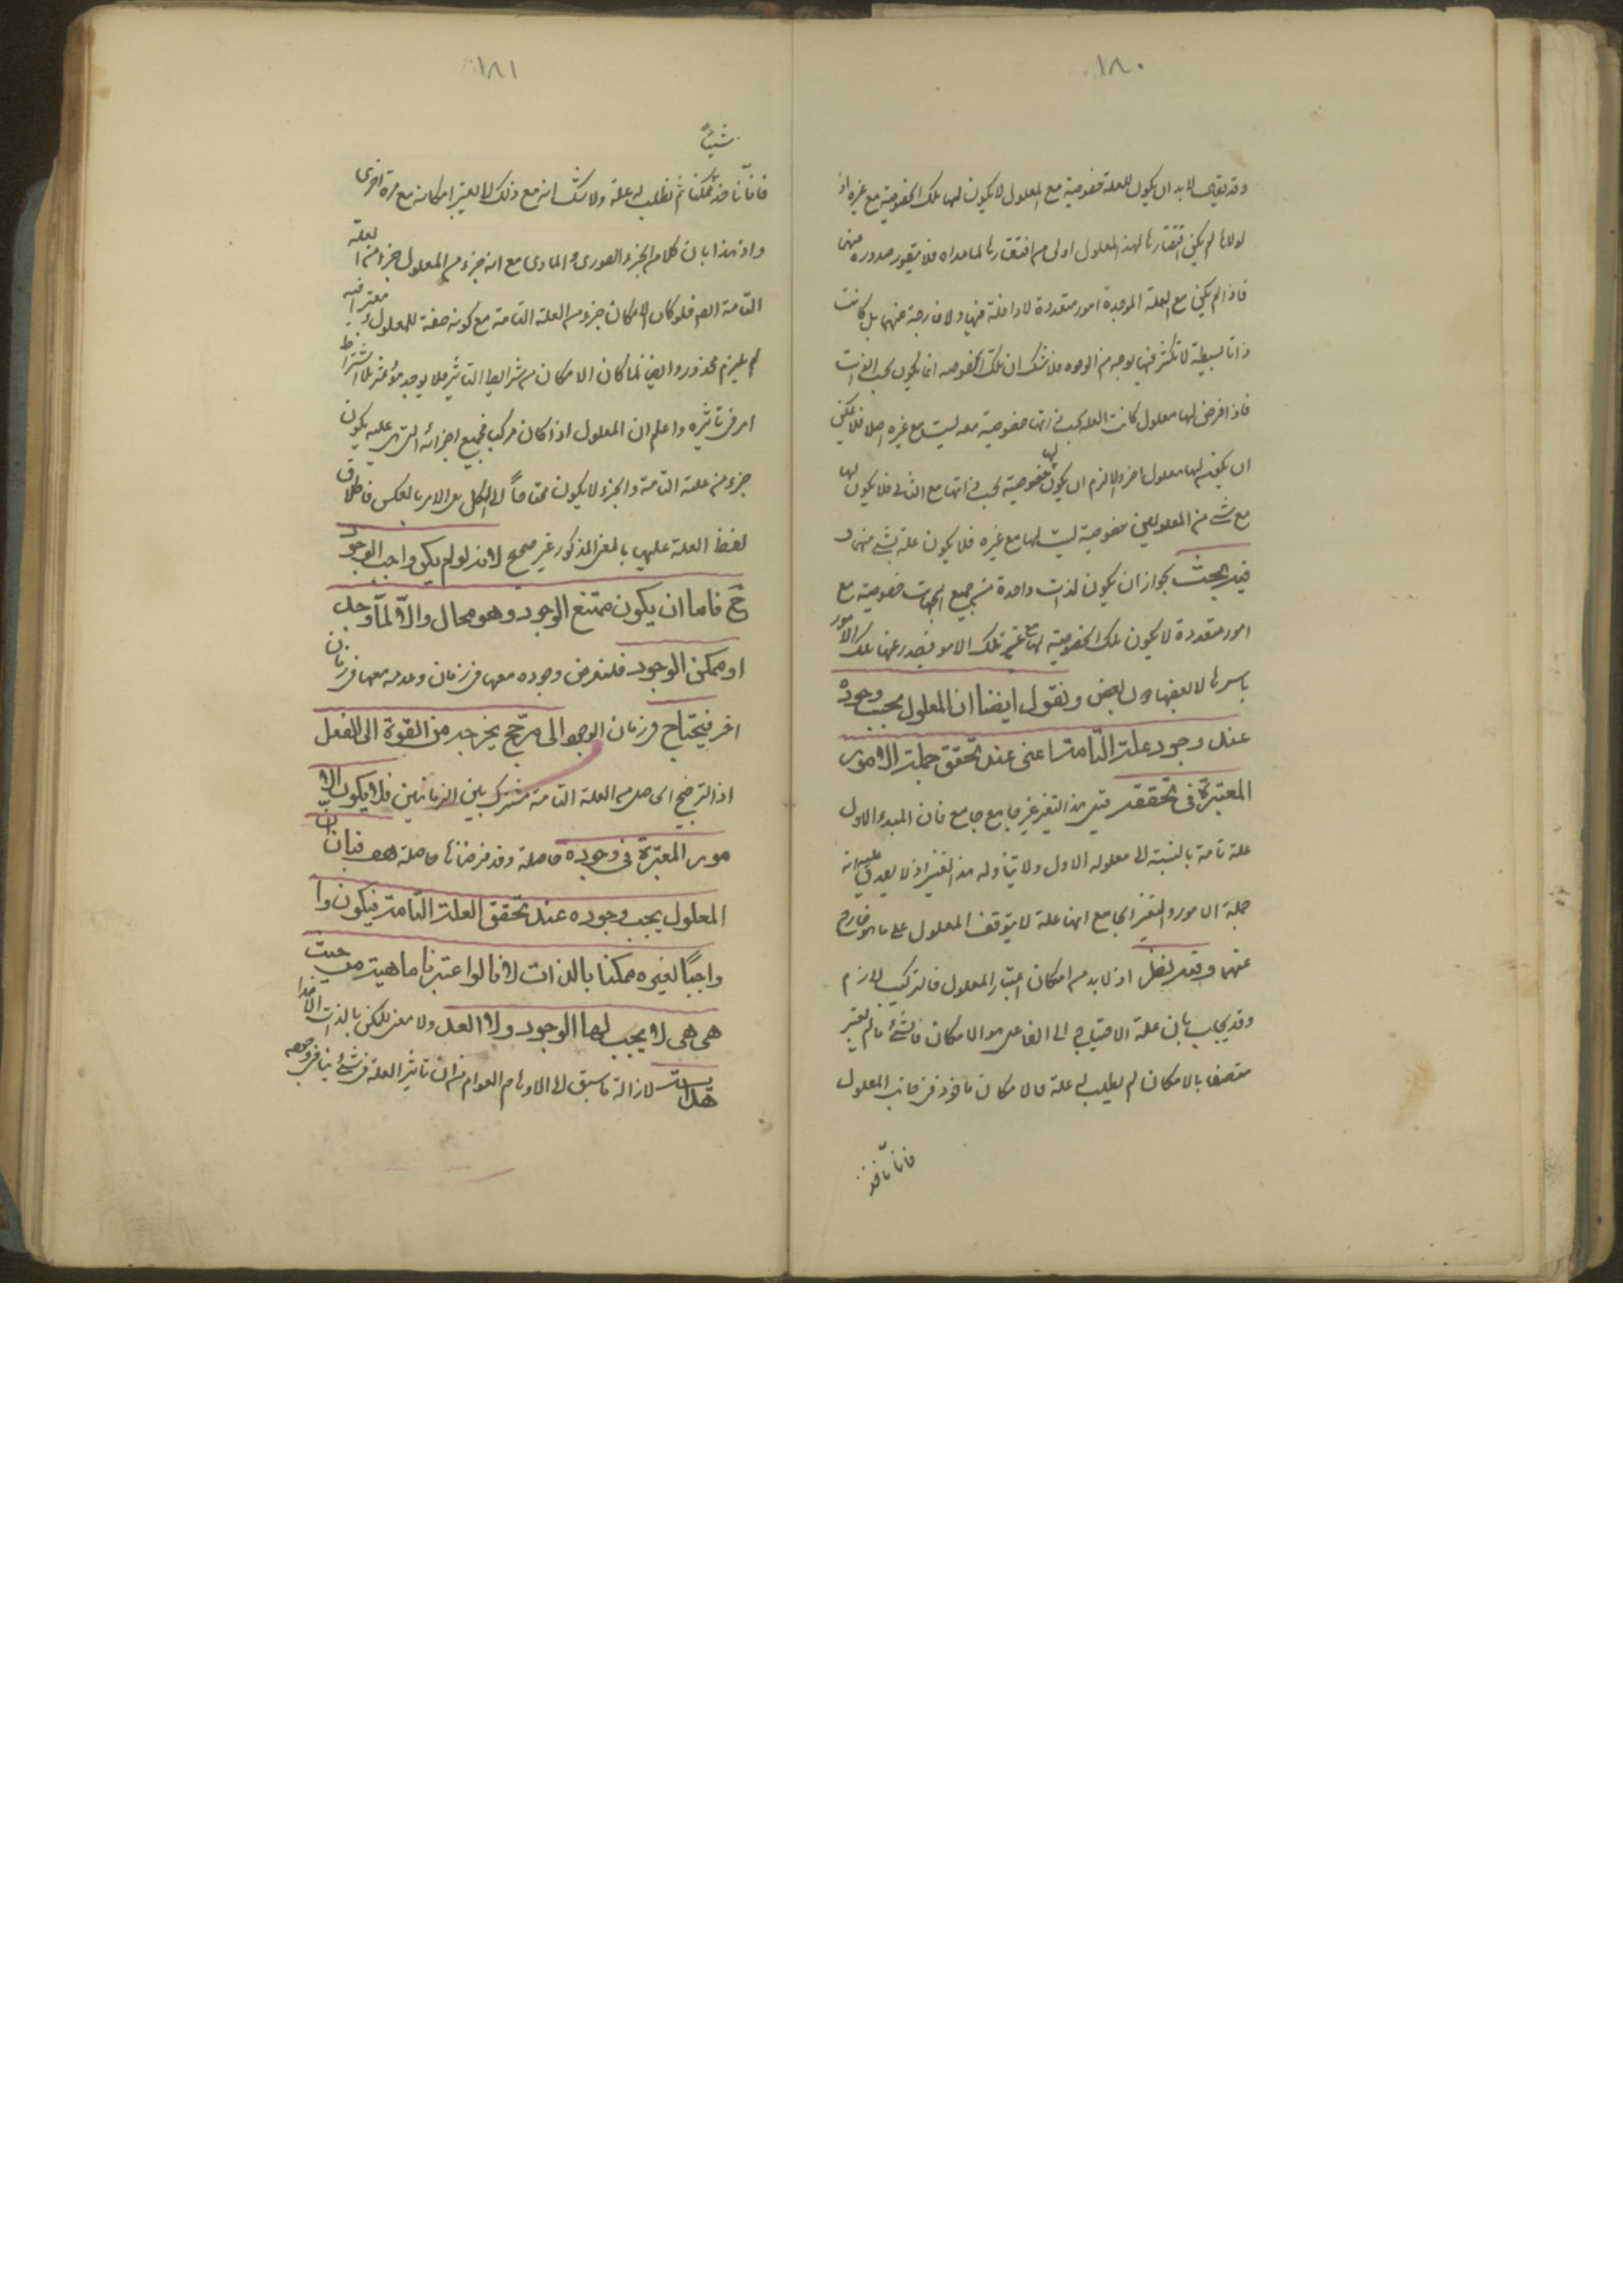 ١٨٠
وقد يقال لابد ان يكون للعلة خصوصية مع المعلول لا يكون لها تلك الخصوصية مع غيره اذ
لولاها لم يكن اقتضارها لهذا المعلول اولى من اقتضائها لما عداه فلا يتصور صدوره منها
فاذا لم يكن مع العلة الموجدة امور متعددة لا داخلة فيها ولا خارجة عنها بل كانت
ذاتا بسيطة لا تكثر فيها بوجه من الوجوه فلا شك ان تلك الخصوصية انما يكون بحسب الذات
فاذا فرض لها معلول كانت العلة بحسب ذاتها خصوصية معه ليست مع غيره اصلا فلا يمكن
ان يكون لها معلول اخر والا لزم ان يكون لها خصوصية بحسب ذاتها مع الثاني فلا يكون لها
مع شيء من المعلولين خصوصية ليست لها مع غيره فلا يكون علة لشيء منهما و
فيه بحث لجواز ان يكون لذات واحدة من جميع الجهات خصوصية مع
امور متعددة لا يكون تلك الخصوصية لها مع غير تلك الامور فيصدر عنها تلك الامور
باسرها لا بعضها دون بعض ونقول ايضا ان المعلول يجب وجوده
عند وجود علته التامة اعنى عند تحقق جملة الامور
المعتبرة فى تحققه قيل هذا التفسير غير جامع فان المبدء الاول
علة تامة بالنسبة الى معلوله الاول ولا يتناوله هذا التفسير اذ لا يصدق عليه انه
جملة الامور والتفسير الجامع انها علة لا يتوقف المعلول على ما هو خارج
عنها وفيه نظر اذ لابد من امكان اعتبار المعلول فالتركيب لازم
وقد يجاب بان علة الاحتياج الى الفاعل هو الامكان فالشئ ما لم يعتبر
متصفا بالامكان لم يطلب له علة فالامكان ماخوذ فى جانب المعلول
فانا ناخذ
١٨١
شيئاً
فانا ناخذ ممكنا ثم نطلب له علة ولا شك انه مع ذلك لا يعتبر امكانه مع مرة اخرى
واذ هذا بان كلا من الجزء الصورى والمادى مع انه جزء من المعلول جزء من العلة
التامة ايضا فلو كان الامكان جزء من العلة التامة مع كونه صفة للمعلول معتبرا فيه
لم يلزم محذور وايضا لما كان الامكان من شرايط التاثير فلا يوجد مؤثر بلا اشتراط
امر فى تاثيره واعلم ان المعلول اذا كان مركبا فجميع اجزائه التى هى عليه يكون
جزء من علته التامة والجزء لا يكون محتاجاً الى الكل بل الامر بالعكس فاطلاق
لفظ العلة عليها بالمعنى المذكور غير صحيح لانه لو لم يكن واجب الوجود
ح فاما ان يكون ممتنع الوجود وهو محال والا لما وجد
او ممكن الوجود فلنفرض وجوده معها فى زمان وعدمه معها فى زمان
اخر فيحتاج فى زمان الوجود الى مرجّح يخرجه من القوة الى الفعل
اذ الترجيح الحاصل من العلة التامة مشترك بين الزمانين فلا يكون الا
مور المعتبرة فى وجوده حاصلة وقد فرضناها حاصلة هف فبان انّ
المعلول يجب وجوده عند تحقق العلة التامة فيكون وا
واجبًا لغيره ممكنا بالذات لانا لو اعتبرنا ماهيته من حيث
هى هى لا يجب لها الوجود ولا العدم ولا معنى للممكن بالذات الا هذا
هداية لازالة ما سبق الى الاوهام العوام من ان تاثير العلة فى شئ ينافى وجوده